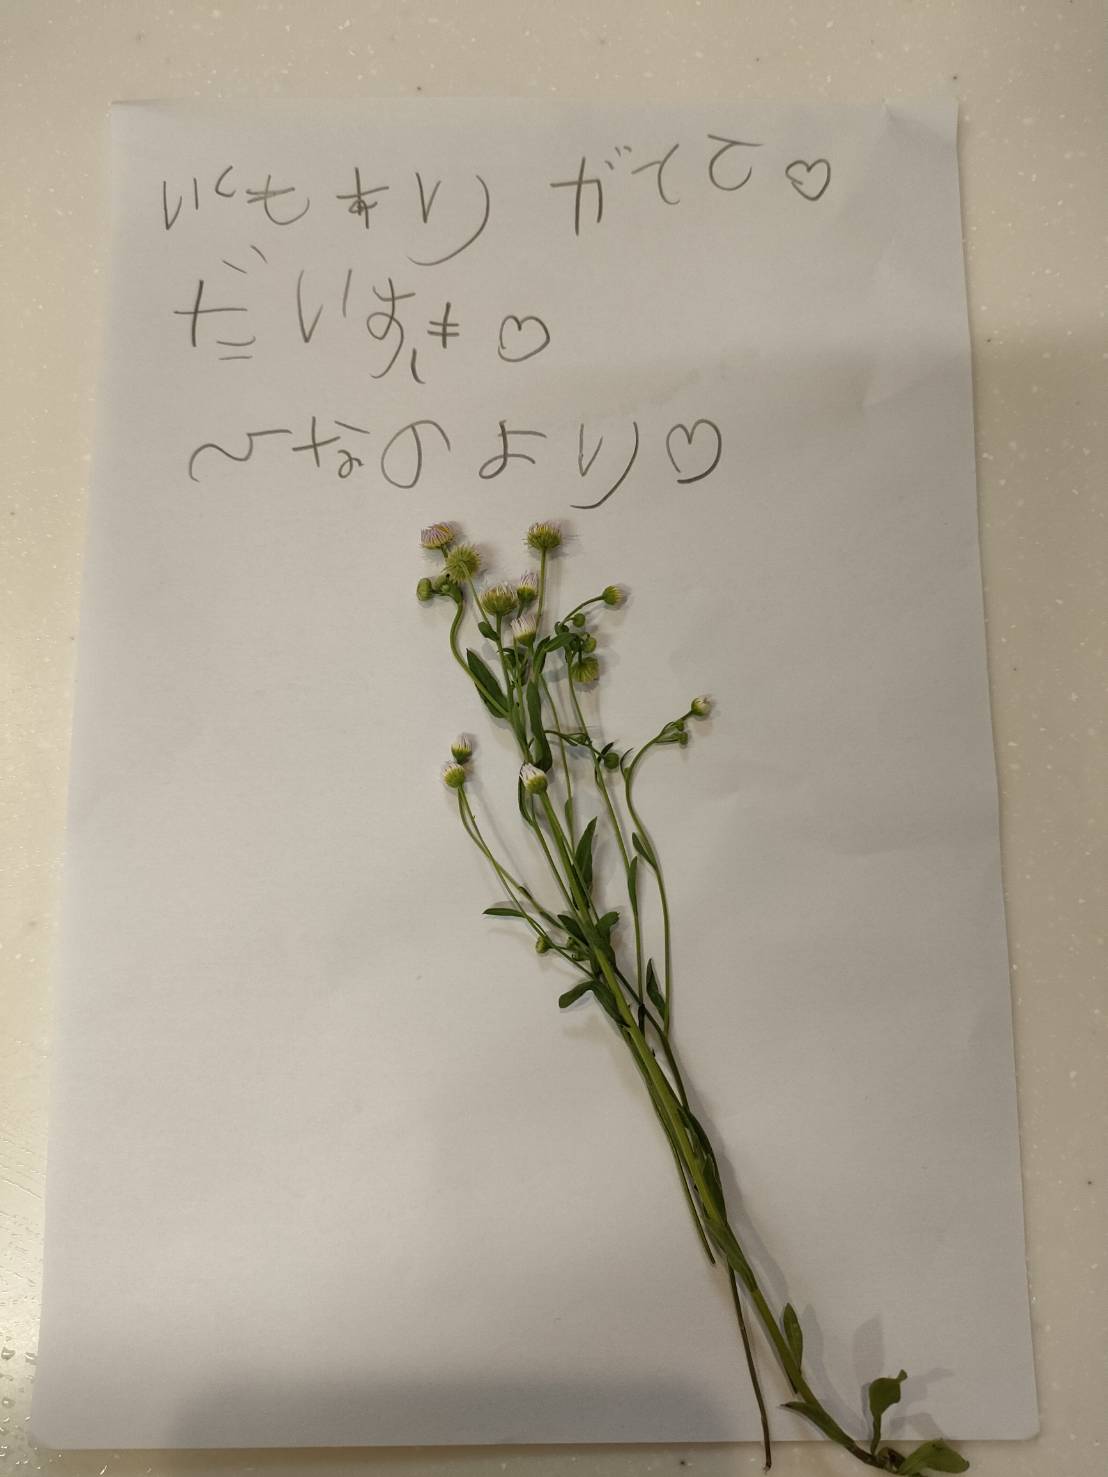 いくもありがてて♡
だいすき♡
〜なのより♡